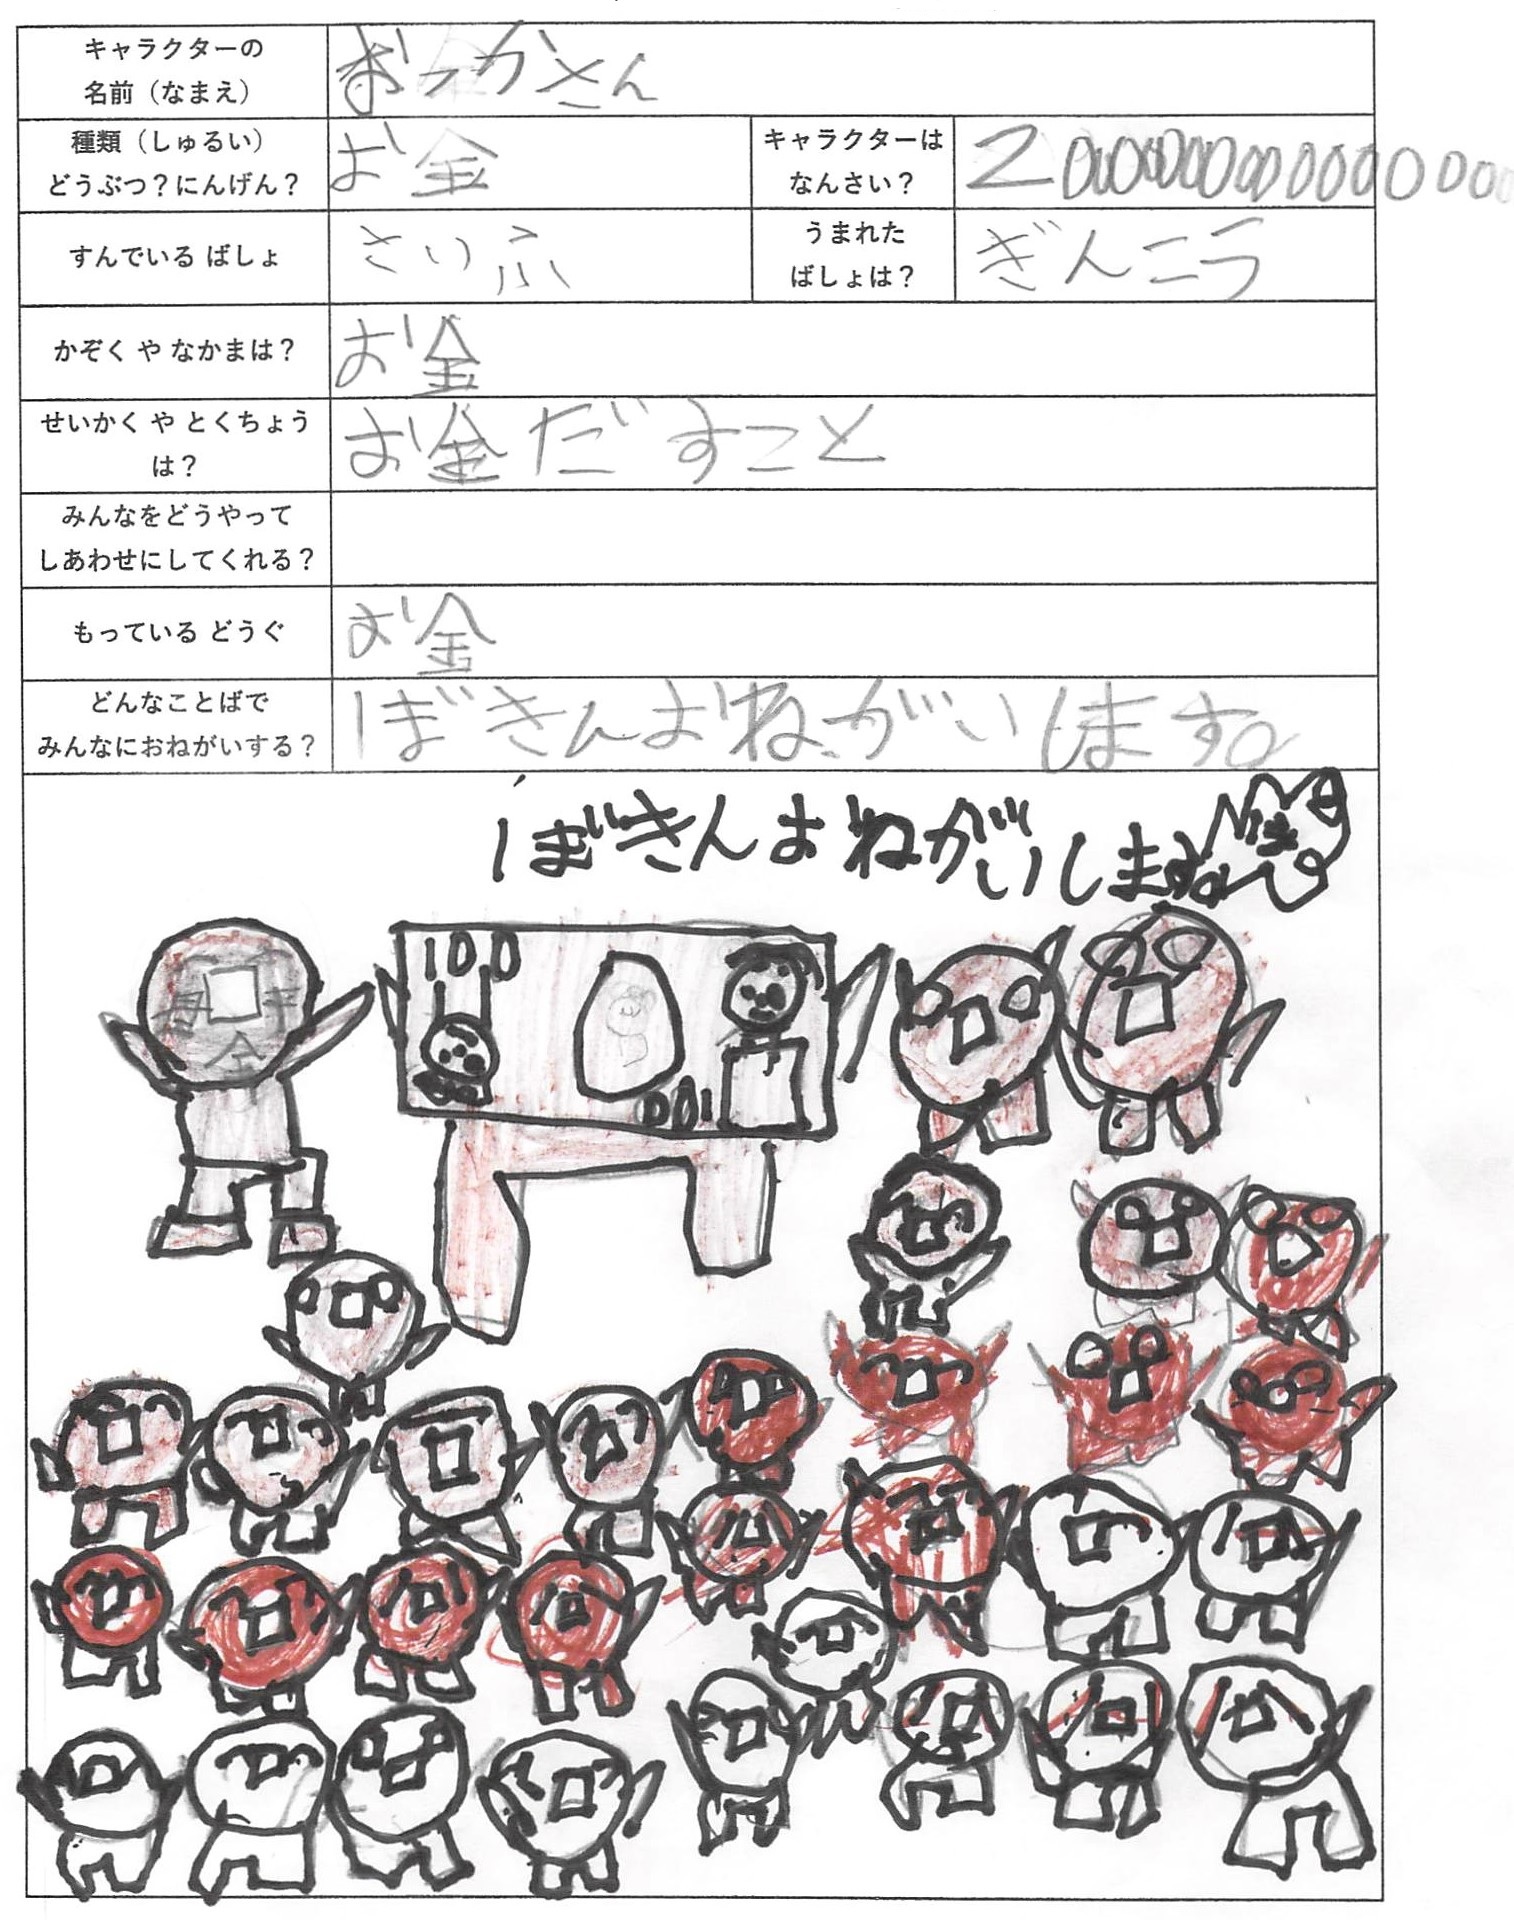 キャラクターの
名前（なまえ）
おっかさん
種類（しゅるい）
どうぶつ？にんげん？
お金
キャラクターは
なんさい？
すんでいる ばしょ
さいふ
うまれた
ばしょは？
ぎんこう
かぞく や なかまは？
お金
せいかく や とくちょう
は？
お金だすこと
みんなをどうやって
しあわせにしてくれる？
もっている どうぐ
お金
どんなことばで
みんなにおねがいする？
ぼきんおねがいします。
ぼきんおねがいします。
100
001